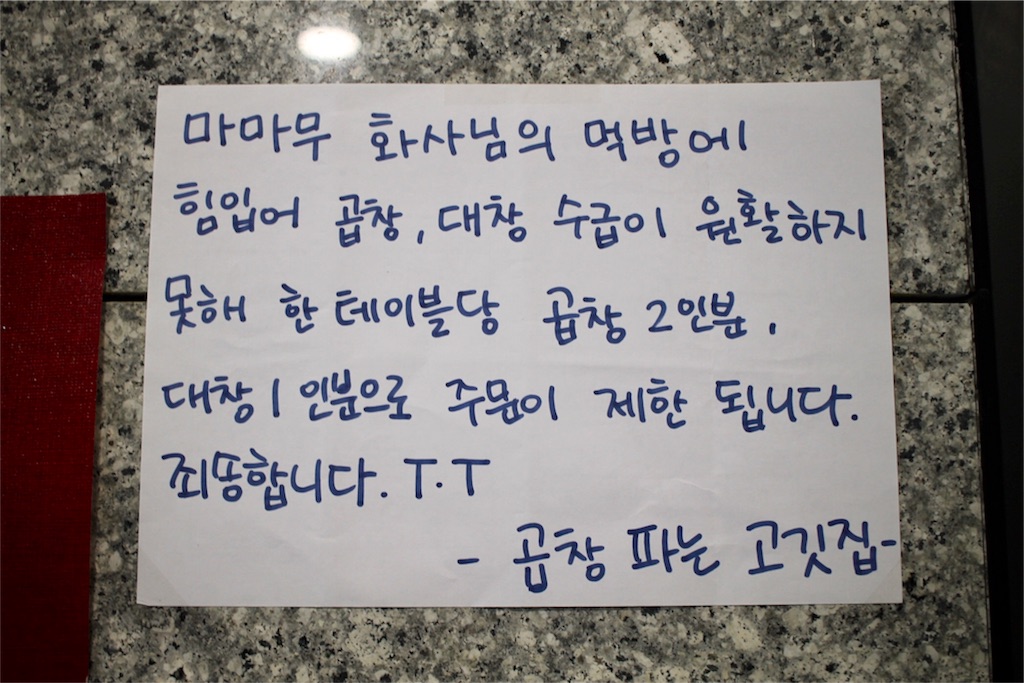 마마무 화사님의 먹방에
힘입어 곱창, 대창 수급이 원활하지
못해 한 테이블당 곱창 2인분,
대창 1 인분으로 주문이 제한 됩니다.
죄송합니다. T.T
- 곱창 파는 고깃집-